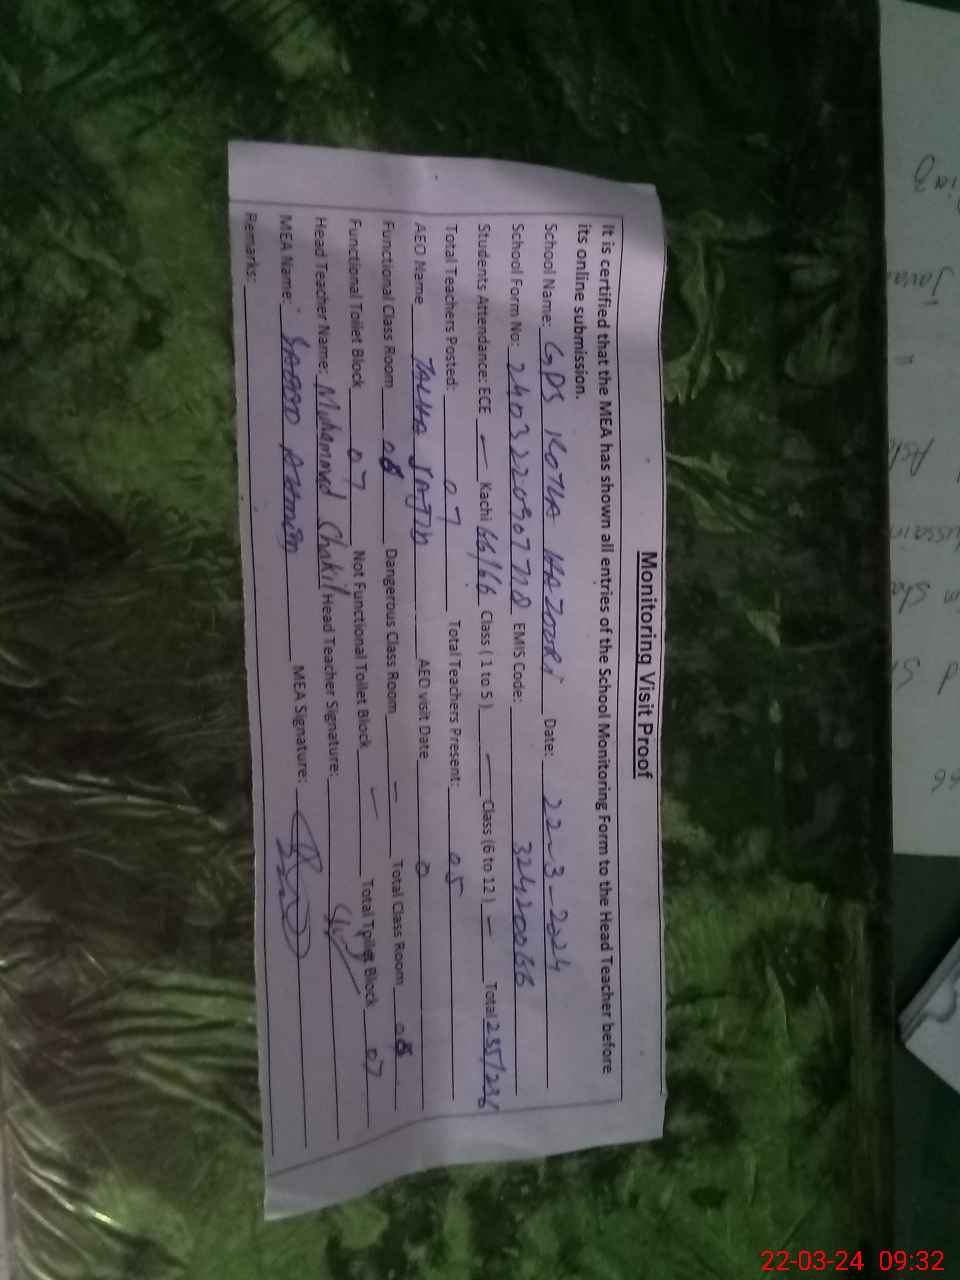 Monitoring Visit Proof
It is certified that the MEA has shown all entries of the School Monitoring Form to the Head Teacher before
its online submission.
School Name: GPS KOTLA HAZOORI Date: 22-3-2024
School Form No: EMIS Code: 32420066
Students Attendance: ECE — Kachi 66/66 Class (1 to 5) — Class (6 to 12) — Total 255/236
Total Teachers Posted: 07 Total Teachers Present: 05
AEO Name TALHA AEO visit Date 0
Functional Class Room 08 Dangerous Class Room — Total Class Room 08
Functional Toilet Block 07 Not Functional Toilet Block — Total Toilet Block 07
Head Teacher Name: Muhammad Shakil Head Teacher Signature:
MEA Name: MEA Signature:
Remarks:
22-03-24 09:32